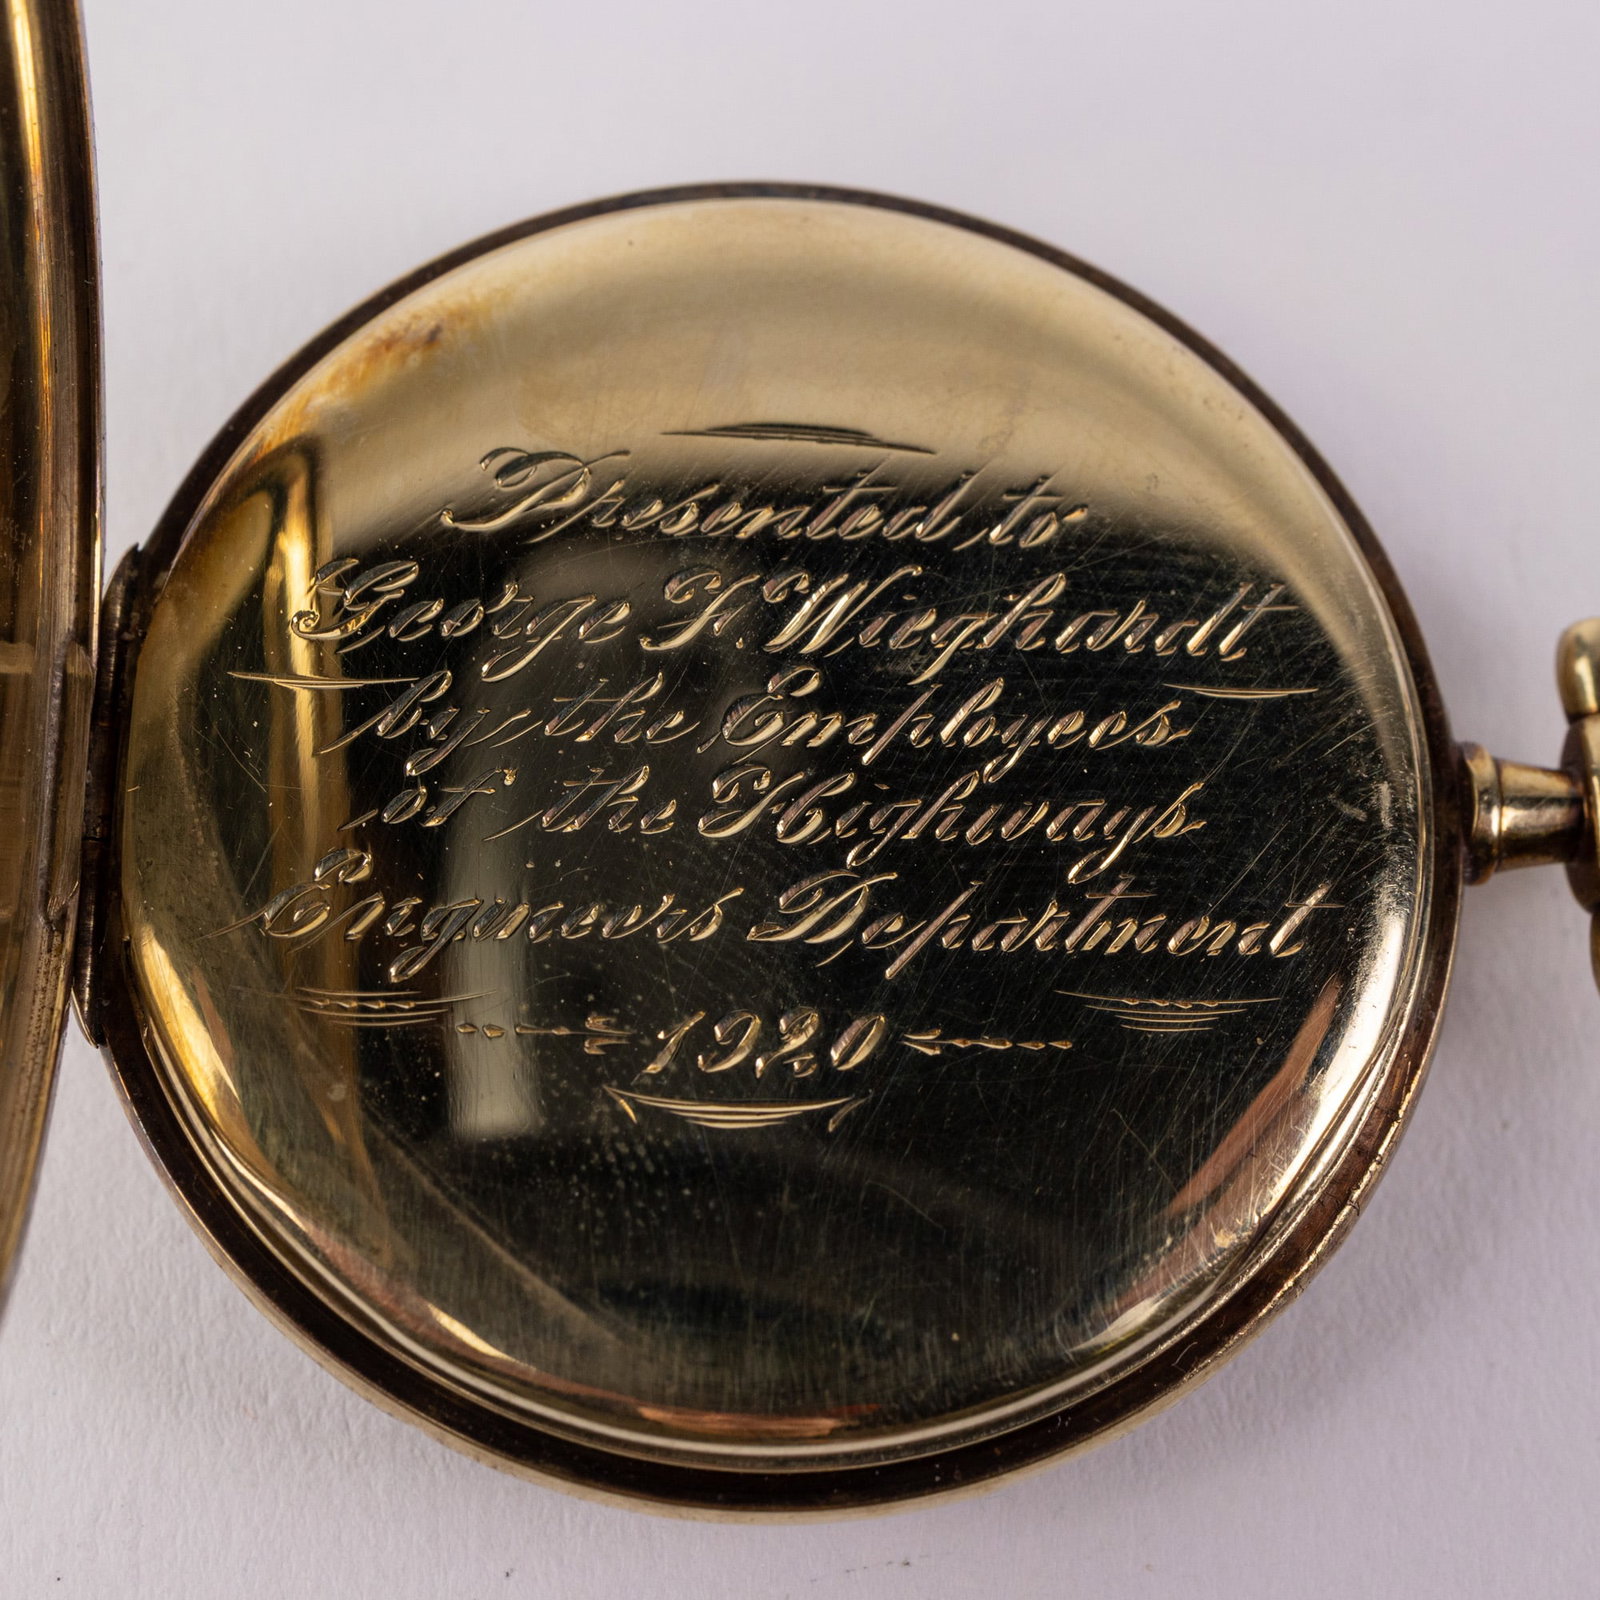 Presented to
George F. Wieghardt
by the Employees
of the Highways
Engineers Department
1920